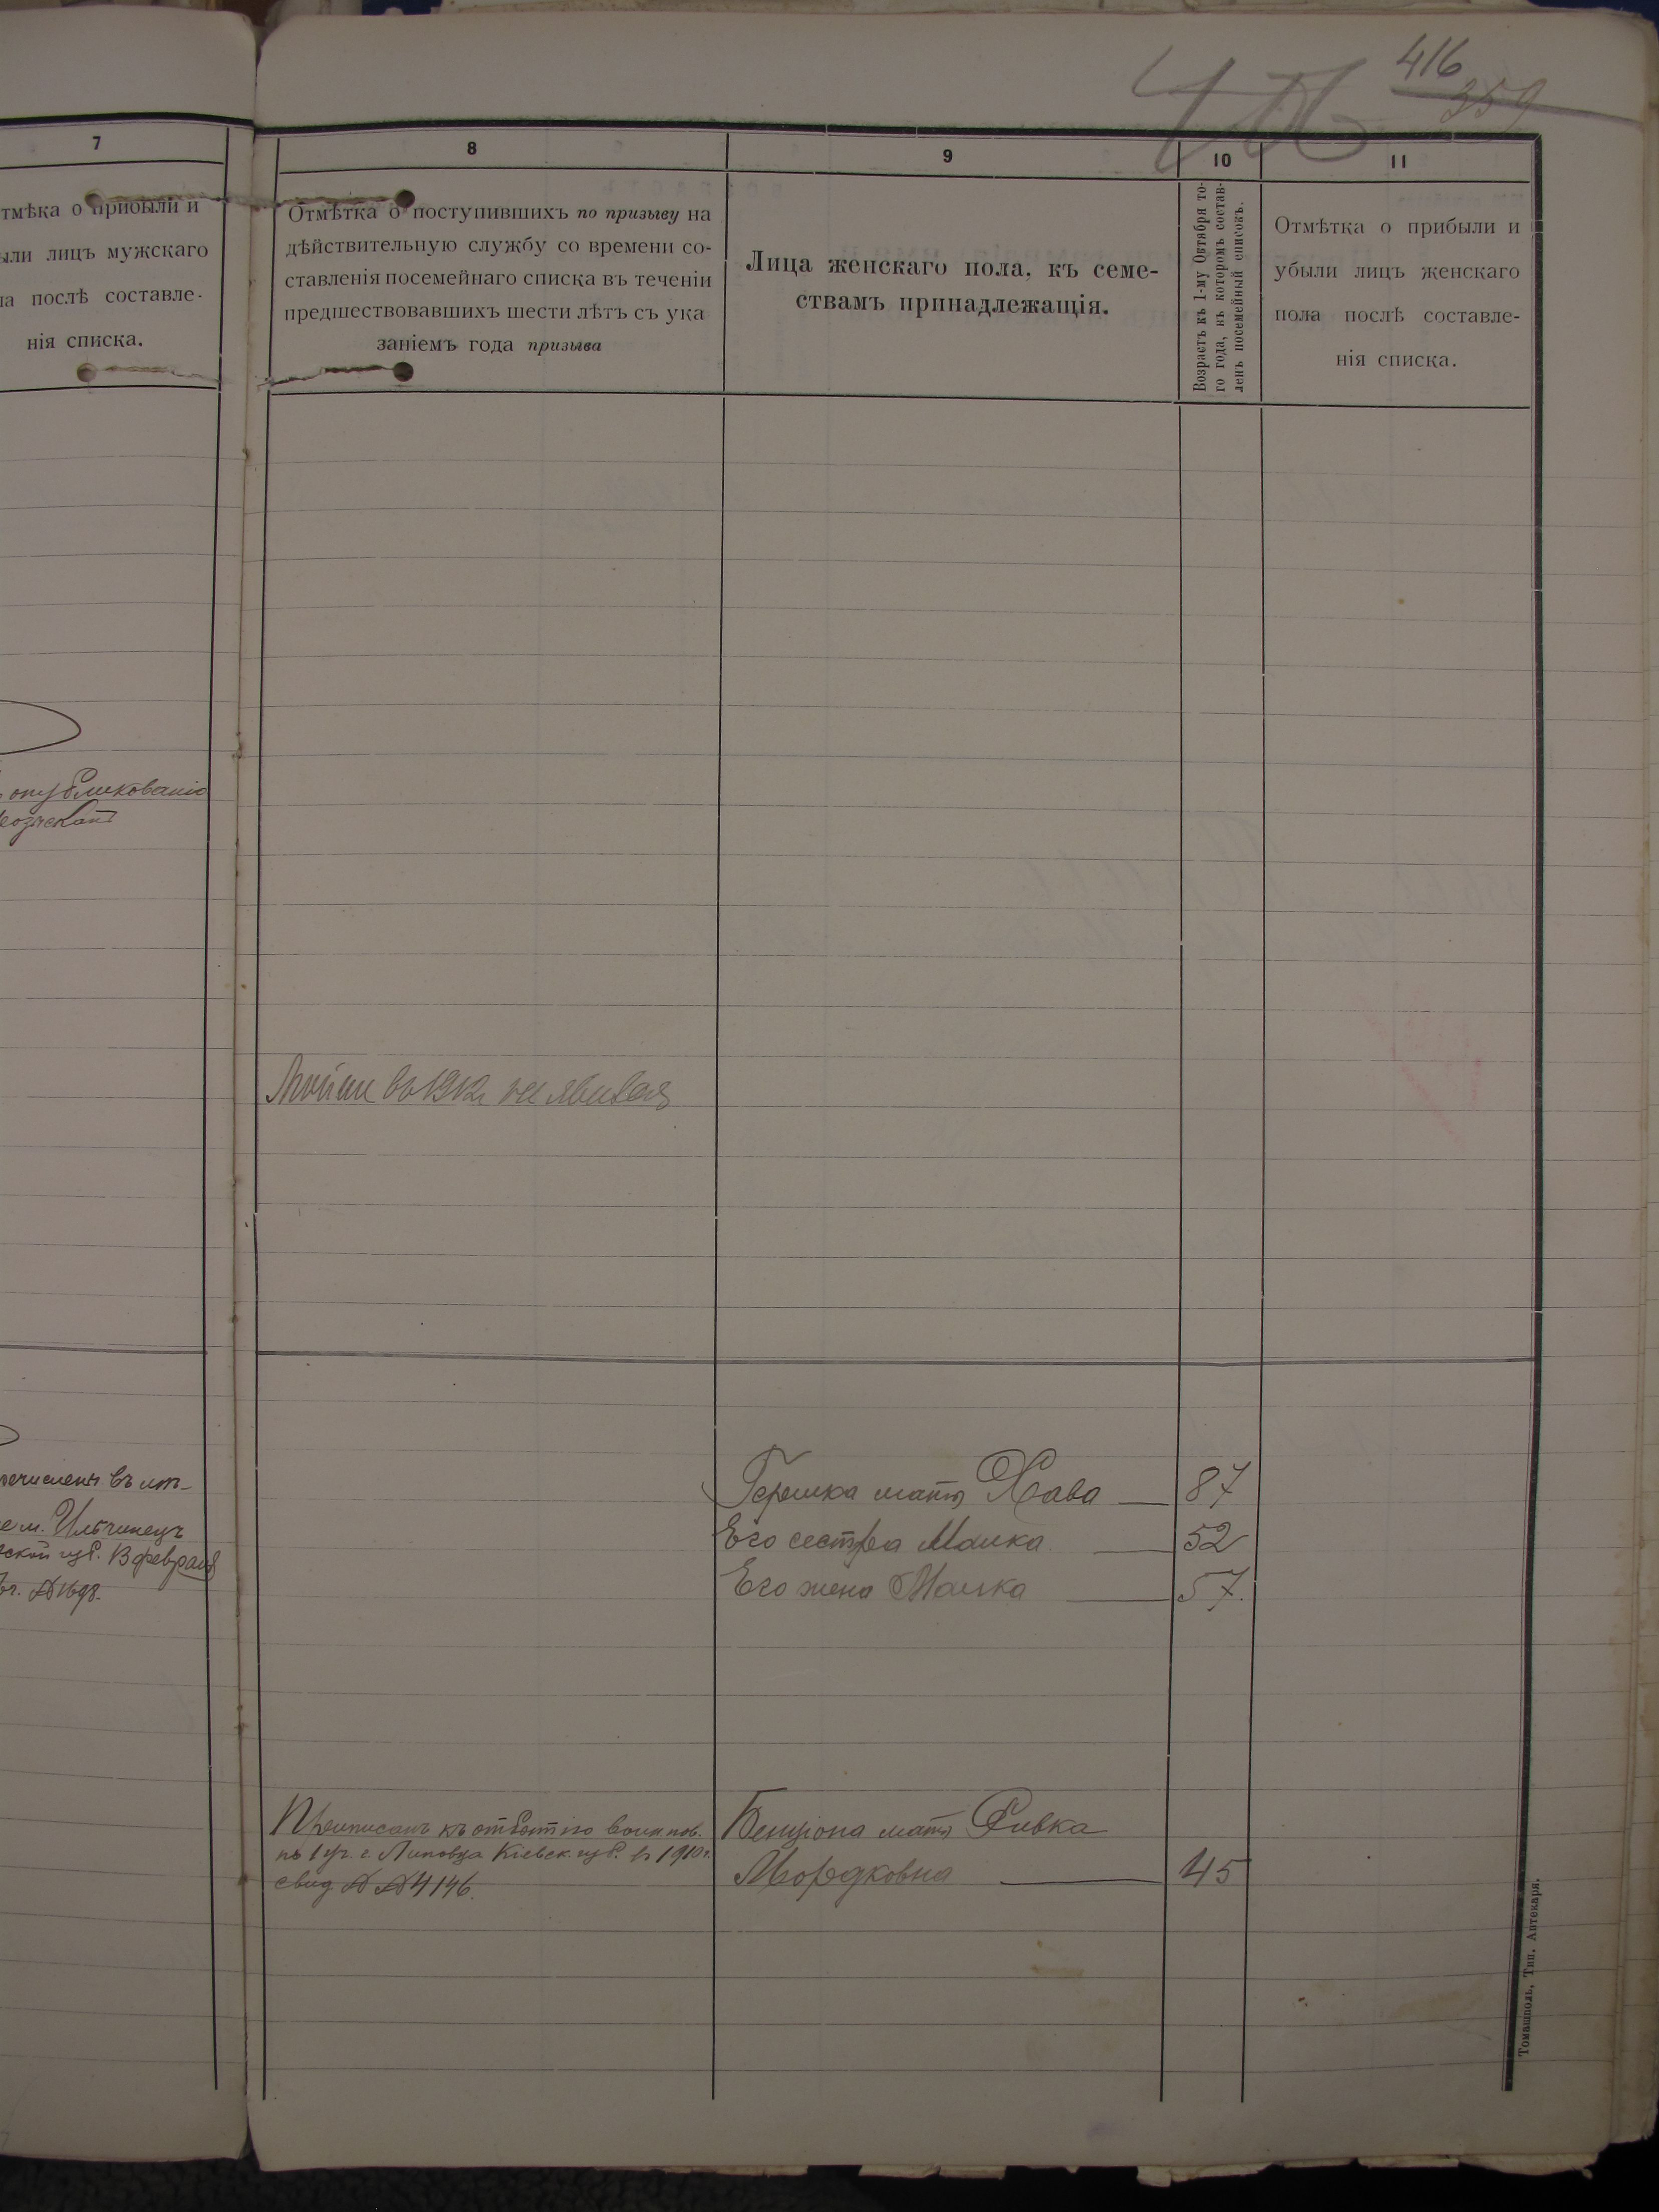 416
359
7
8
9
10
11
тмѣка о прибыли и
ыли лицъ мужскаго
ла послѣ составле-
нія списка.
Отмѣтка о поступившихъ по призыву на
дѣйствительную службу со времени со-
ставленія посемейнаго списка въ теченіи
предшествовавшихъ шести лѣтъ съ ука
заніемъ года призыва
Лица женскаго пола, къ семе-
ствамъ принадлежащія.
Возрастъ къ 1-му Октября то-
го года, въ которомъ состав-
ленъ посемейный списокъ.
Отмѣтка о прибыли и
убыли лицъ женскаго
пола послѣ составле-
нія списка.
опубликованіе
въ 1912 не явился
Гершка мать Хава — 87
Его сестра Малка — 52
Его жена Малка — 57.
въ
м. Ильинецъ
ской губ. 13 февраля
№ 1698.
Приписанъ къ отбыт по воин пов.
къ 1 уч. г. Липовца Кіевск. губ. въ 1910 г.
свид № 4146.
Бенціона мать Ривка
Мордковна — 45
Томашполь, Тип. Аптекаря.